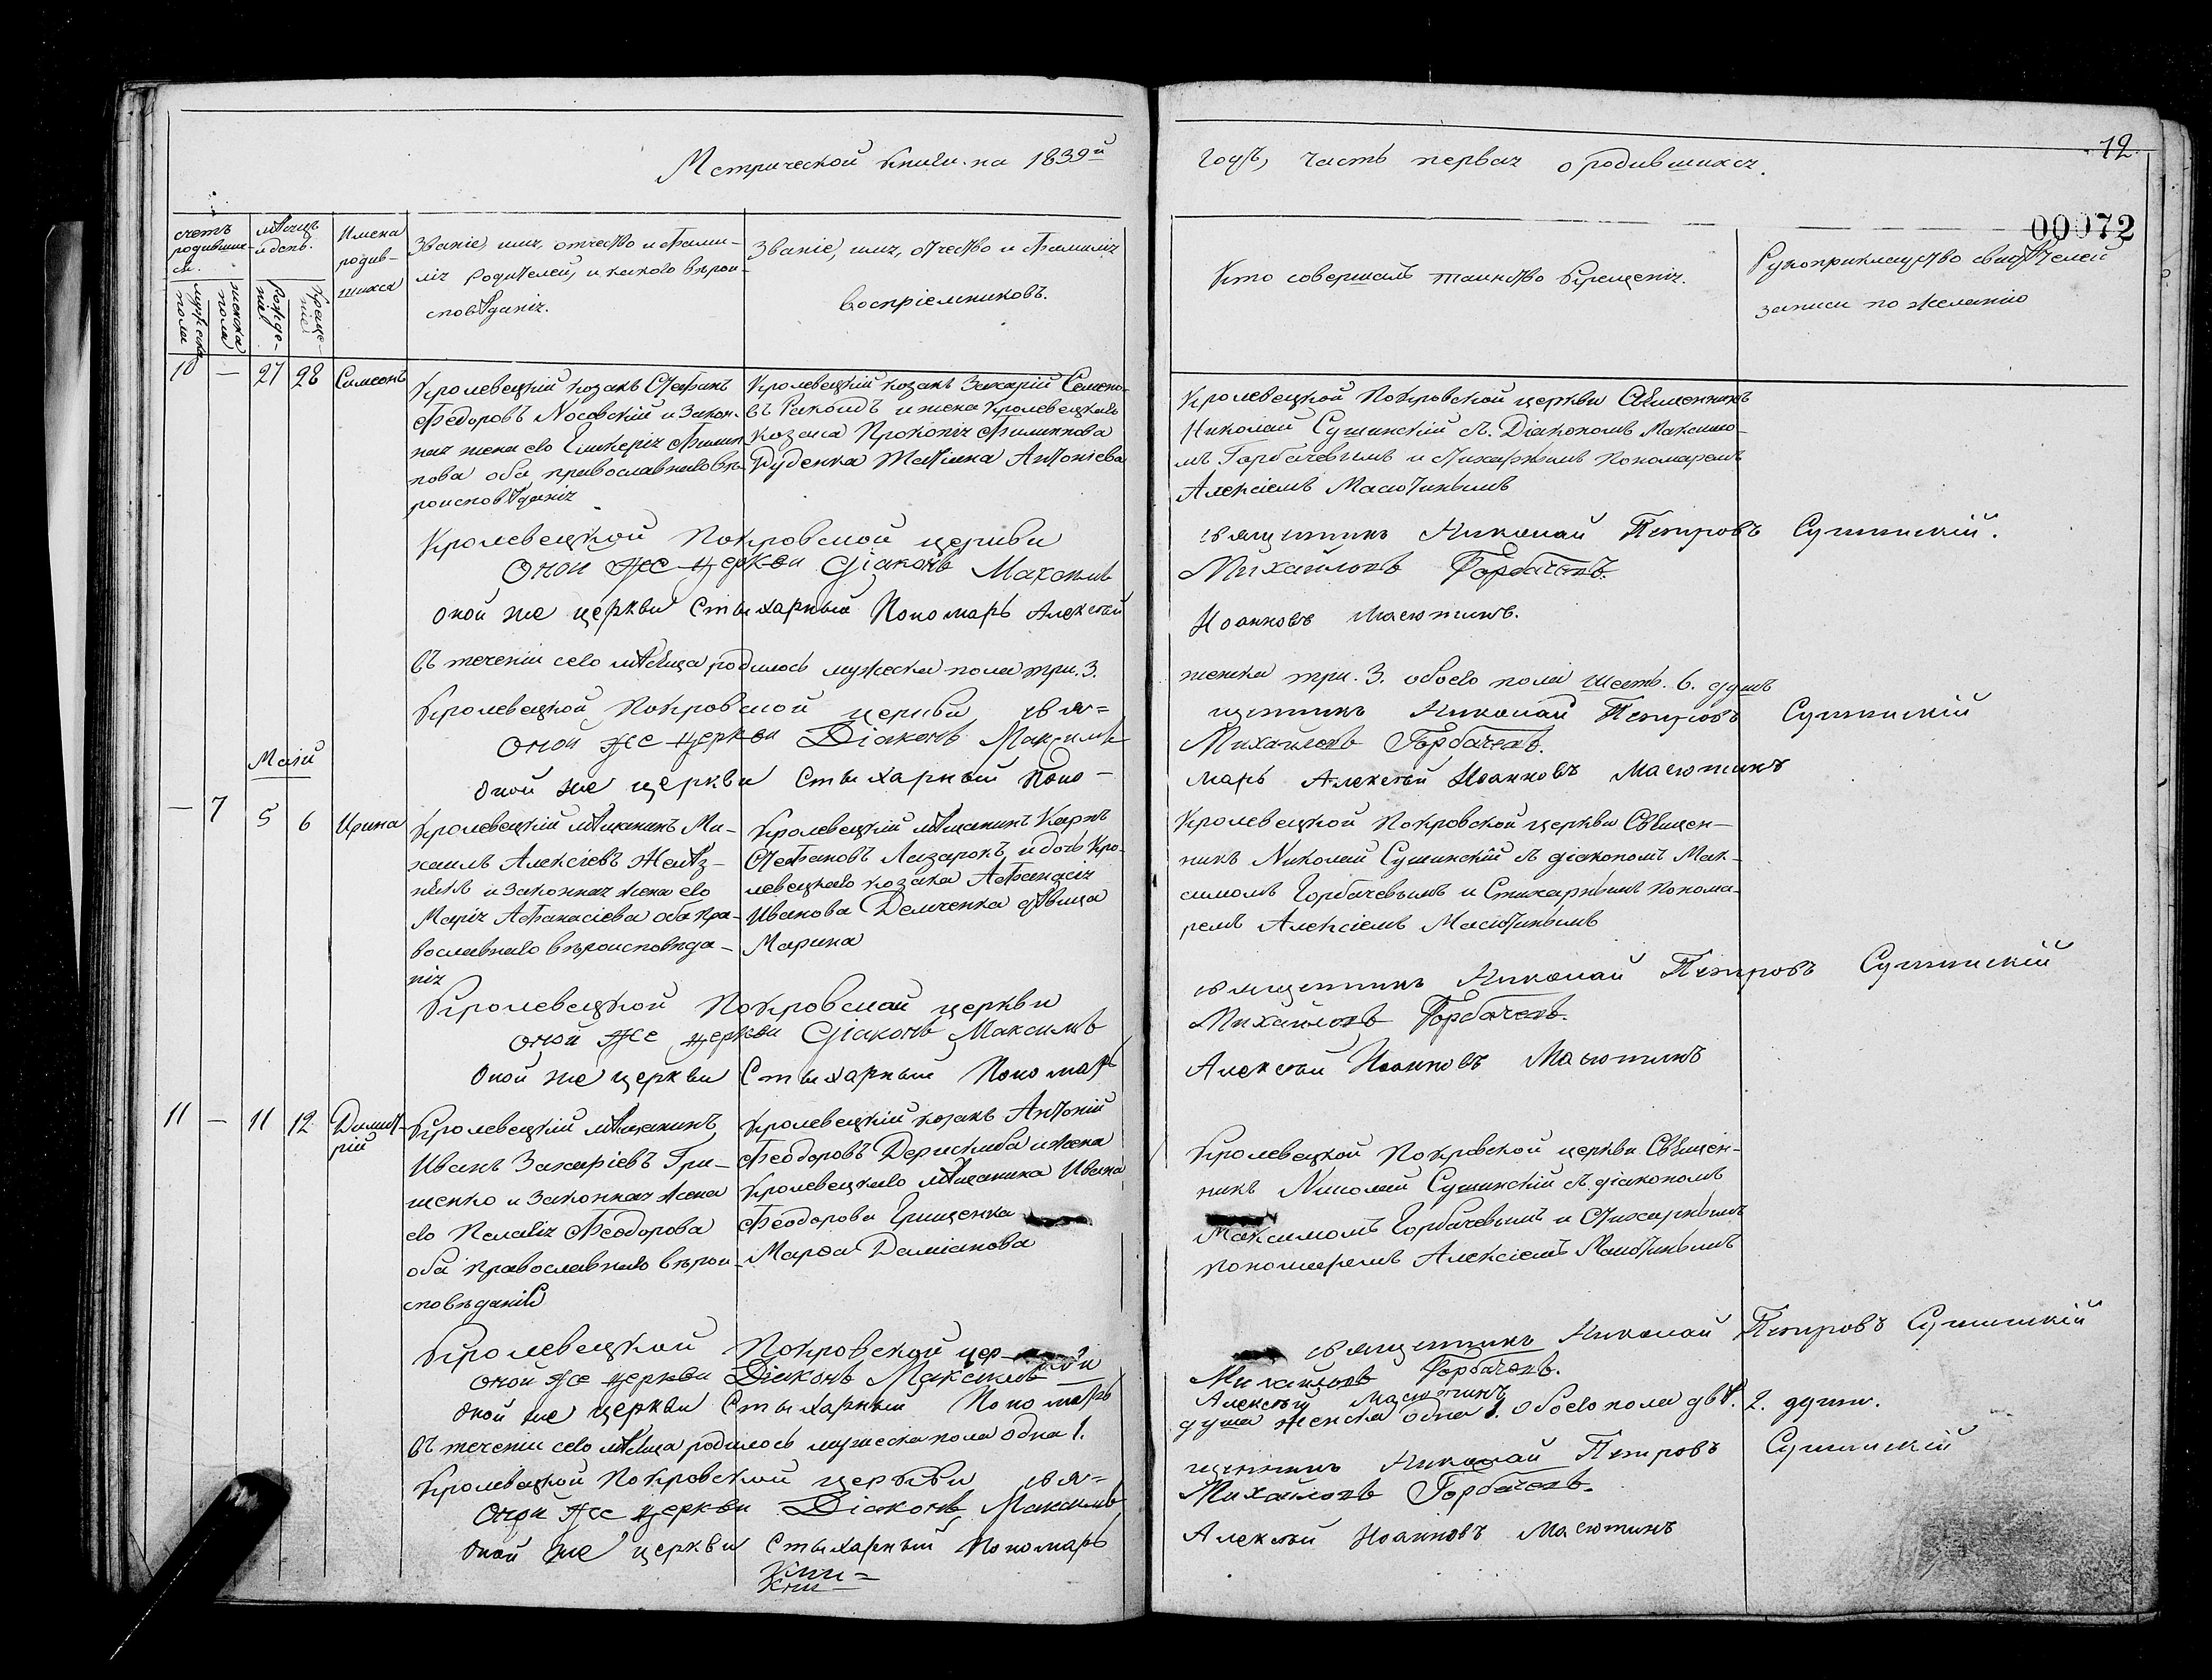 Метрической книги на 1839й
годъ, часть первая о родившихся.
12
00072
счетъ родившихся.
мѣсяцъ и день.
Имена родившихся
Званіе, имя, отчество и фами-
лія родителей, и какого вѣрои-
сповѣданія.
Званіе, имя, отчество и фамилія
воспріемниковъ.
Кто совершалъ таинство крещенія.
Рукоприкладство свидѣтелей
записи по желанію
мужеска пола
женска пола
рожде-
нія
креще-
нія
10 — 27 28 Симеонъ
Кролевецкій козакъ Стефанъ
Феодоровъ Носовскій и закон-
ная жена его Гликерія Филип-
пова оба православнаго вѣ-
роисповѣданія
Кролевецкій козакъ Захарій Семено-
въ и жена Кролевецкаго
козака Прокопія Филиппова
Руденка Татіана Антоніева
Кролевецкой Покровской церкви Священникъ
Николай Сушинскій съ Діакономъ Максимо-
мъ Горбачевымъ и Стихарнымъ пономаремъ
Алексіемъ Масютинымъ
Кролевецкой Покровской церкви
священникъ Николай Петровъ Сушинскій.
Оной же церкви Діаконъ Максимъ
Михайловъ Горбачевъ.
оной же церкви Стыхарный Пономарь Алексѣй
Иоанновъ Масютинъ.
Въ теченіи сего мѣсяца родилось мужеска пола три. 3.
женска три. 3. обоего пола шесть. 6. душъ
Кролевецкой Покровской церкви свя=
щенникъ Николай Петровъ Сушинскій
Оной же церкви Діаконъ Максимъ
Михайловъ Горбачевъ.
оной же церкви Стыхарный Поно-
марь Алексѣй Иоанновъ Масютинъ
Маій
— 7 5 6 Ирина
Кролевецкій мѣщанинъ Ми-
хаилъ Алексіевъ
и законная жена его
Марія Афанасіева оба пра-
вославнаго вѣроисповѣда-
нія
Кролевецкій мѣщанинъ Карпъ
Стефановъ Лазарокъ и дочь Кро-
левецкаго козака Афанасія
Иванова Демченка дѣвица
Марина
Кролевецкой Покровской церкви Священ-
никъ Николай Сушинскій съ діакономъ Мак-
симомъ Горбачевымъ и Стихарнымъ понома-
ремъ Алексіемъ Масютинымъ
Кролевецкой Покровской церкви
священникъ Николай Петровъ Сушинскій
оной же церкви Діаконъ Максимъ
Михайловъ Горбачевъ.
Оной же церкви Стыхарный Пономарь
Алексѣй Иоанновъ Масютинъ
11 — 11 12 Димит-
рій
Кролевецкій мѣщанинъ
Иванъ Захаріевъ Гри-
щенко и законная жена
его Пелагія Феодорова
оба православнаго вѣрои-
сповѣданія
Кролевецкій козакъ Антоній
Феодоровъ Дериглиба и жена
Кролевецкаго мѣщанина Ивана
Феодорова Грищенка
Марѳа Даміанова
Кролевецкой Покровской церкви Священ-
никъ Николай Сушинскій съ діакономъ
Максимомъ Горбачевымъ и Стихарнымъ
пономаремъ Алексіемъ Масютинымъ
Кролевецкой Покровской цер-
священникъ Николай Петровъ Сушинскій
оной же церкви Діаконъ Максимъ
Михайловъ Горбачевъ.
оной же церкви Стыхарный Пономарь
Алексѣй Масютинъ
въ теченіи сего мѣсяца родилось мужеска пола одна 1.
душа женска одна 1. обоего пола двѣ. 2. души.
Кролевецкой Покровской церкви свя=
щенникъ Николай Петровъ Сушинскій
Оной же церкви Діаконъ Максимъ
Михайловъ Горбачевъ.
Оной же церкви Стыхарный Пономарь
Алексѣй Иоанновъ Масютинъ